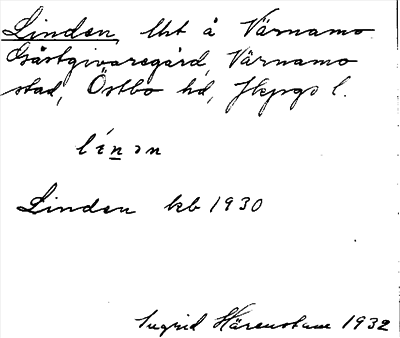 Linden, lht å Värnamo
Gästgivaregård, Värnamo
stad, Östbo hd, Jkpgs l.
línən
Linden kb 1930
Ingrid Härenstam 1932